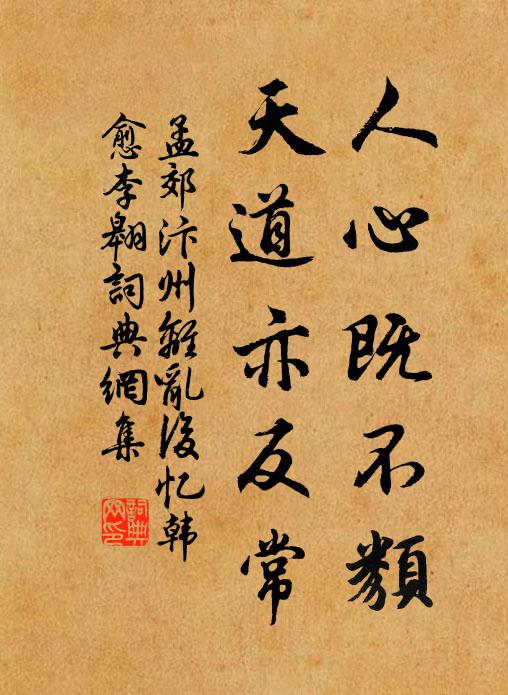 人心既不類
天道亦反常
孟郊汴州離亂後忆韩
愈李翱詞典網集
詞典
网印